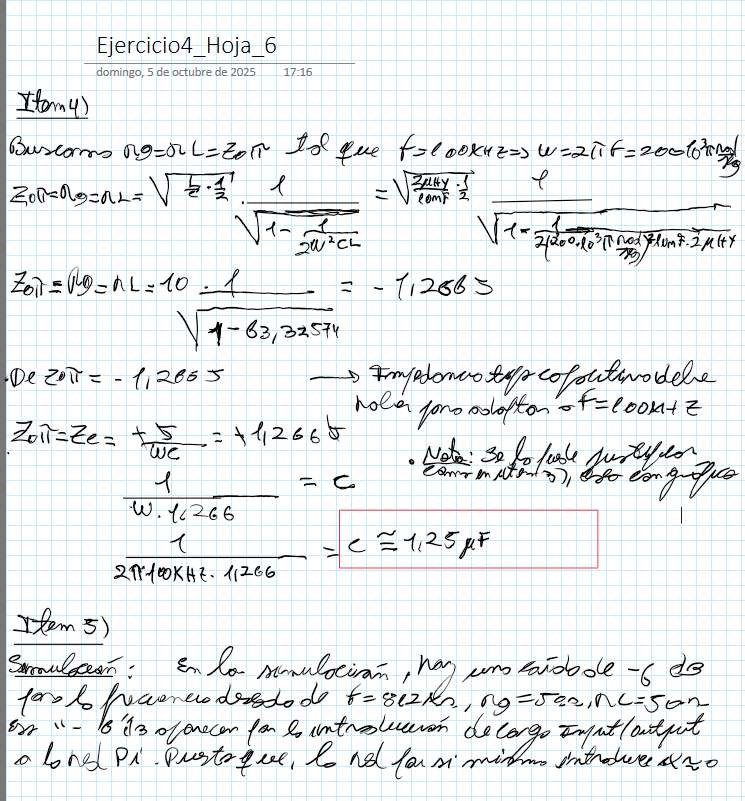 Ejercicio4_Hoja_6
domingo, 5 de octubre de 2025 17:16
Item 4)
Buscamos rg=rL=Zoπ tal que f=100KHz => w=2πf=200·10³π rad/sg
Zoπ=rg=rL= √(L/C · 1/2) · 1/√(1 - 1/(2w²CL)) = √(2μHy/10nF · 1/2) · 1/√(1 - 1/(2(200·10³π rad/sg)²·10nF·2μHy))
Zoπ=rg=rL=10 · 1/√(1-63,32574) = -1,2665j
De Zoπ = -1,2665j → Impedancia tipo capacitivo debe
haber para adaptar a f=100KHz
Zoπ=Zc= +j/wc = +1,2665
1/(w·1,266) = c
• Nota: Se lo puede justificar
como en item 3), eso con gráfica
1/(2π·100KHz·1,266) = c ≅ 1,25 μF
Item 5)
Simulación: En la simulación, hay una caída de -6 dB
para la frecuencia deseada de f=812 , rg=50Ω, rL=50Ω
"-6 dB aparecen por la introducción de carga Input/output
a la red Pi. Puesto que, la red por si misma introduce α≈0